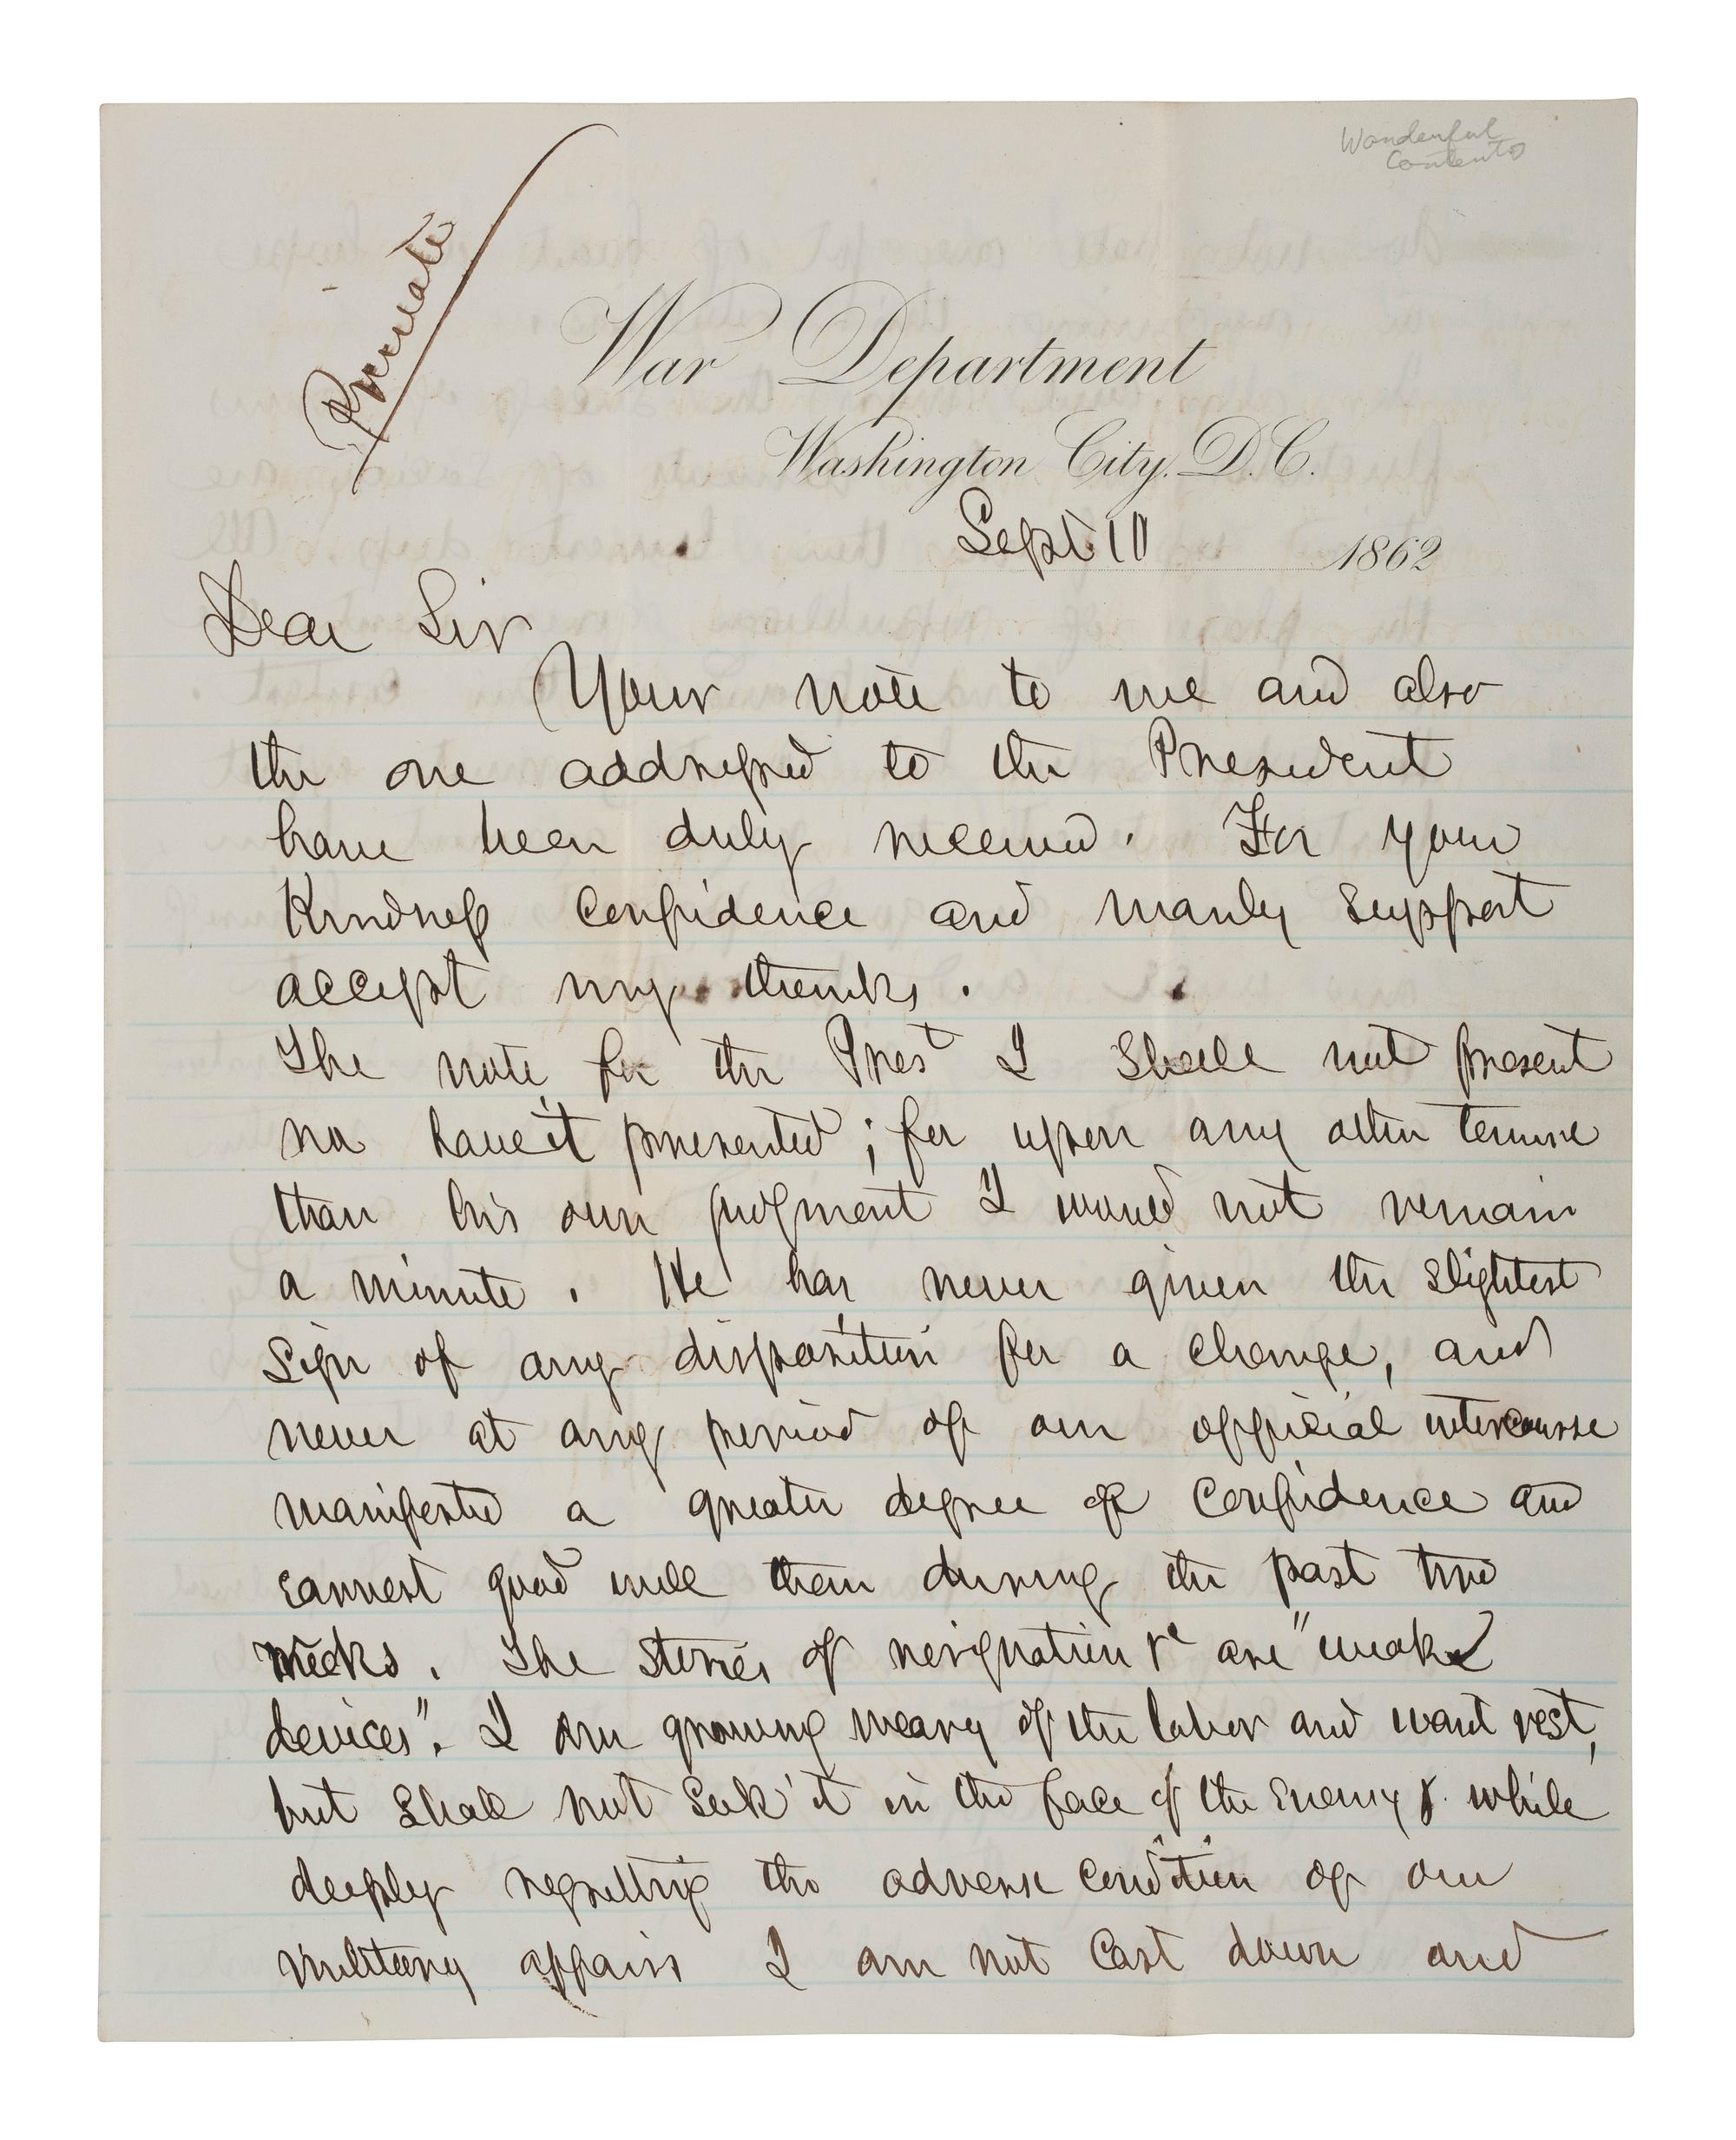 Wonderful
Contents
Private
War Department
Washington City, D.C.
Sept 10 1862
Dear Sir
Your note to me and also
the one addressed to the President
have been duly received. For your
Kindness Confidence and manly Support
accept my thanks.
The note for the Prest I Shall not present
nor have it presented; for upon any other tenure
than his own judgment I would not remain
a minute. He has never given the Slightest
Sign of any disposition for a change, and
never at any period of our official intercourse
manifested a greater degree of Confidence and
earnest good will than during the past two
weeks. The Stories of resignation &c are "weak
devices". I am growing weary of the labor and want rest,
but Shall not Seek it in the face of the Enemy & while
deeply regretting the adverse Condition of our
military affairs I am not Cast down and